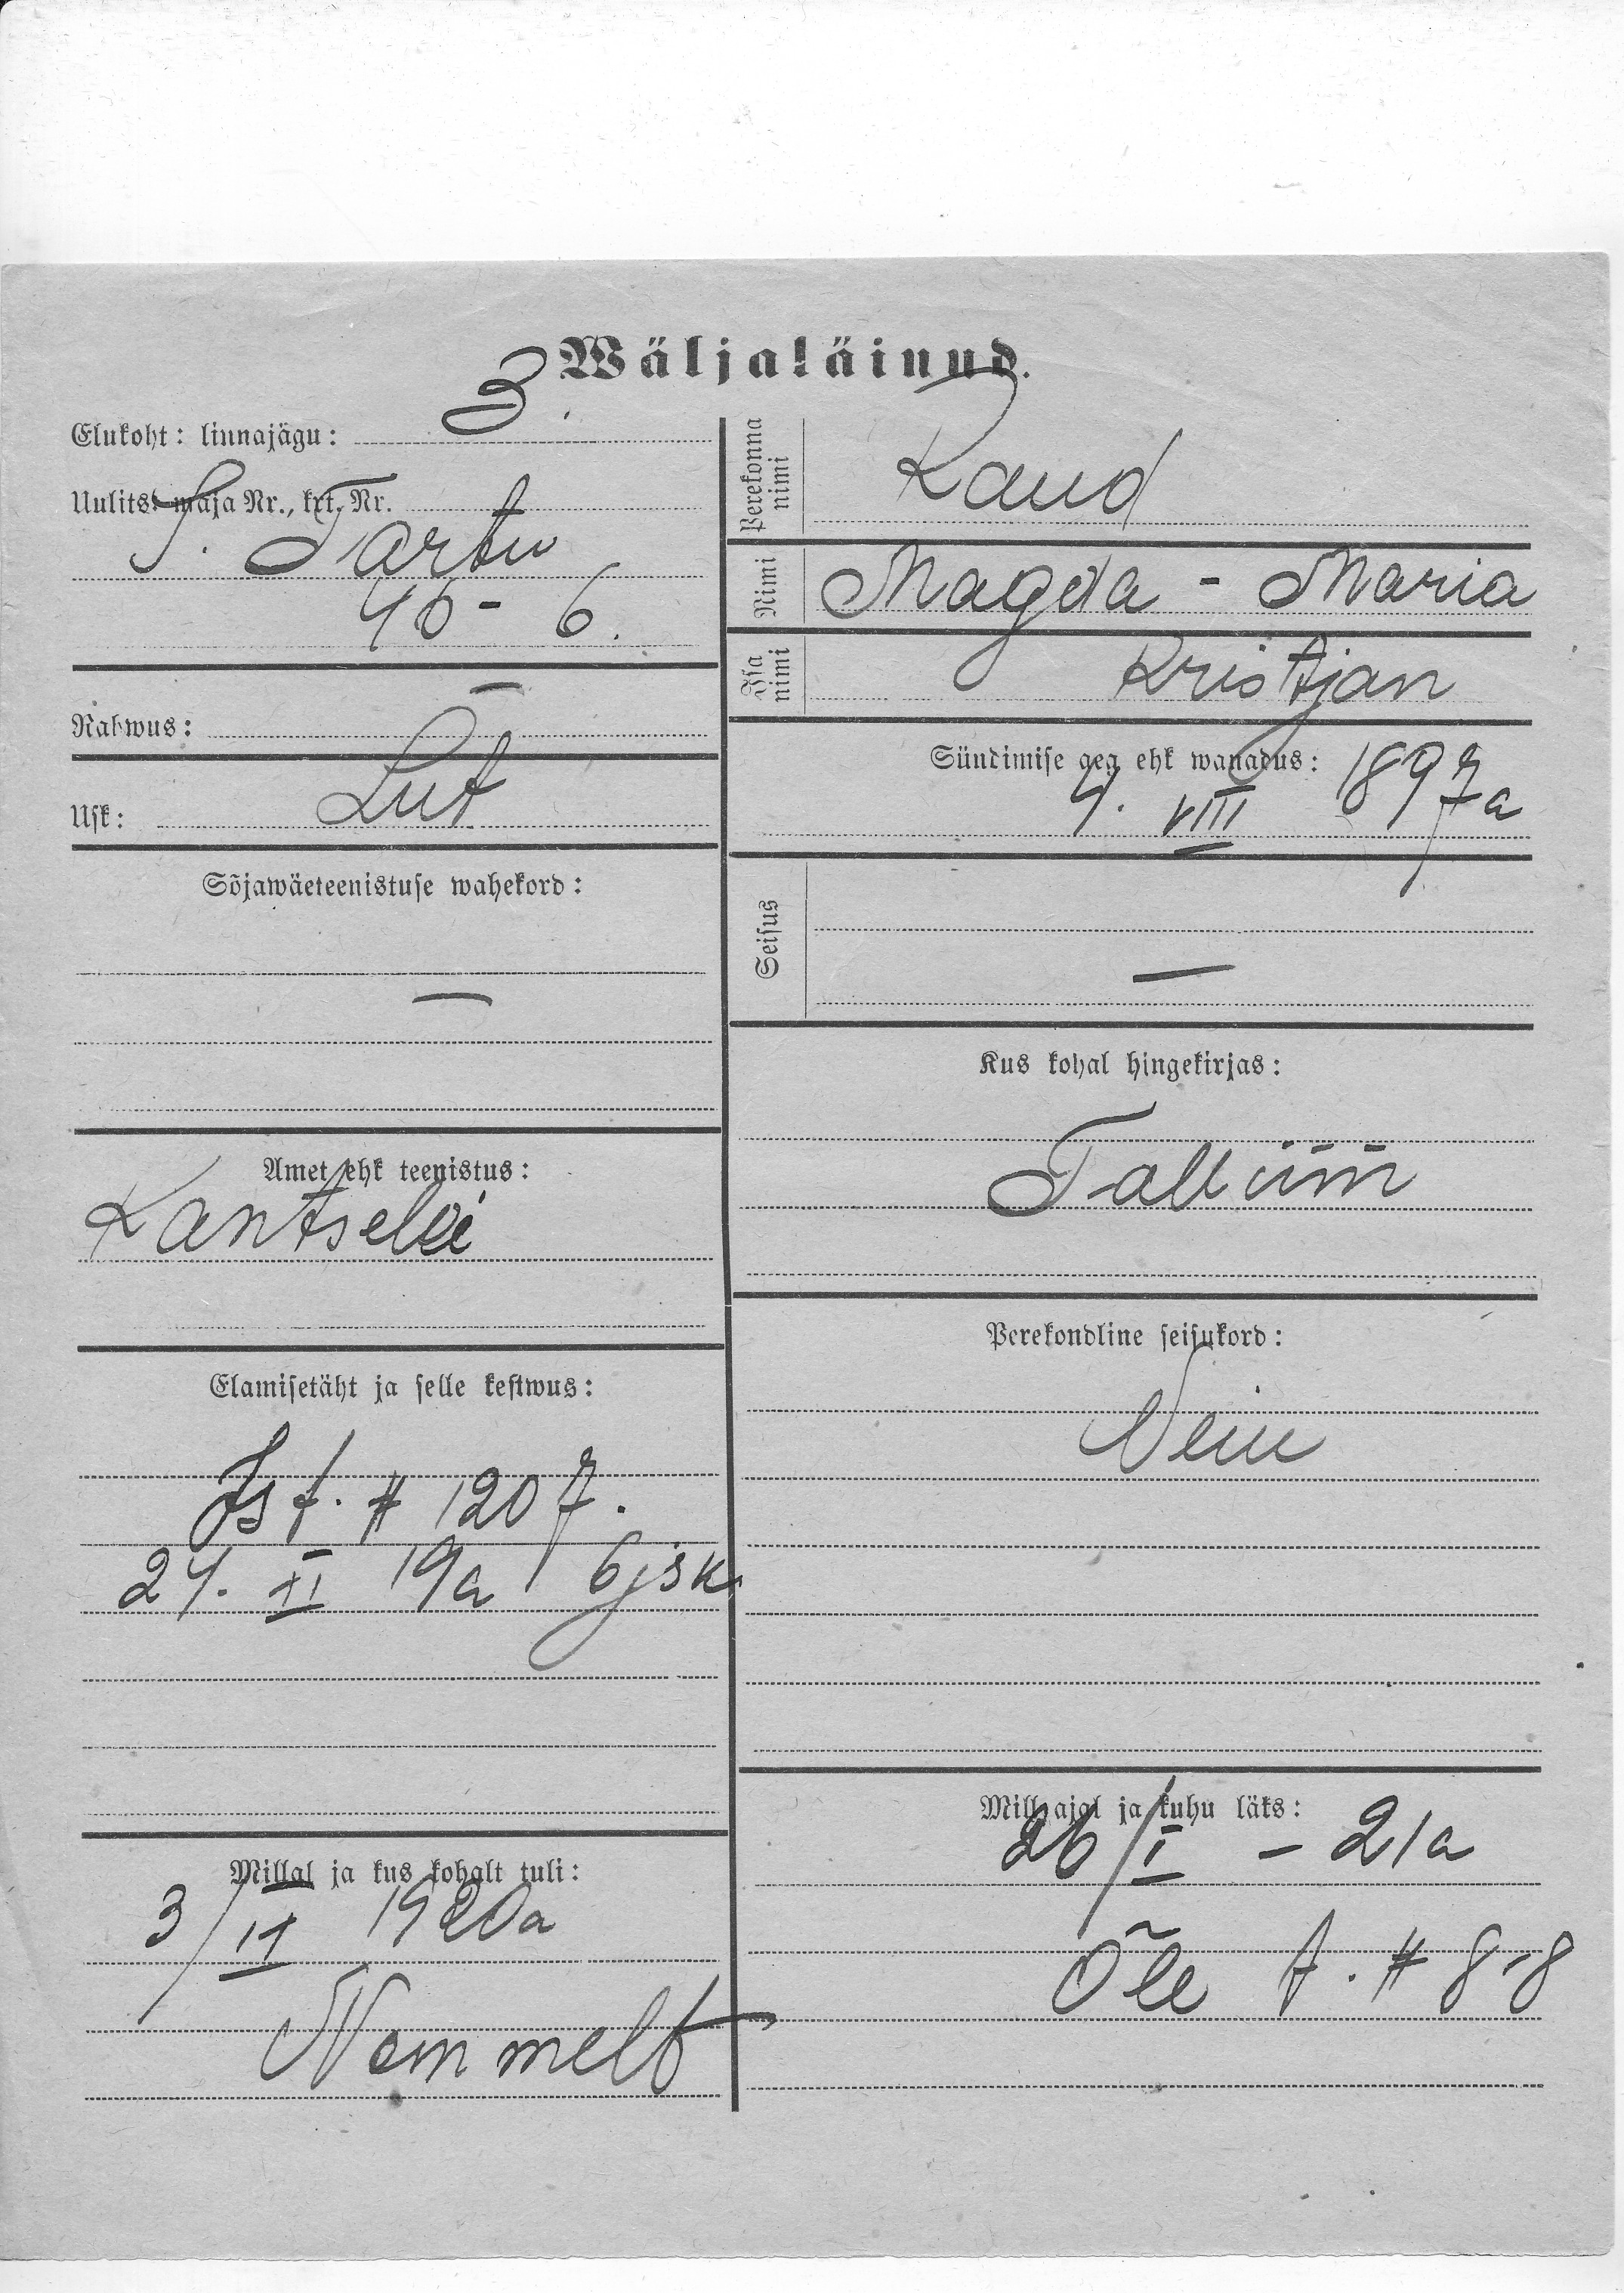 Wäljaläinud.
Elukoht: linnajägu: 3.
Uulits: maja Nr., krt. Nr.
S. Tartu
46 - 6.
Rahwus: —
Usk: Lut
Sõjawäeteenistuse wahekord:
—
Amet ehk teenistus:
Kantselei
Elamisetäht ja selle kestwus:
Ist. # 1207.
24. XI 19a 6jsk
Millal ja kus kohalt tuli:
3/II 1920a
Nõmmelt
Perekonna nimi
Raud
Nimi
Magda - Maria
Isa nimi
Kristjan
Sündimise aeg ehk wanadus: 1897a
4. VIII
Seisus
—
Kus kohal hingekirjas:
Tallinn
Perekondline seisukord:
Neiu
Mill ajal ja kuhu läks:
26/I - 21a
Õle t. # 8-8